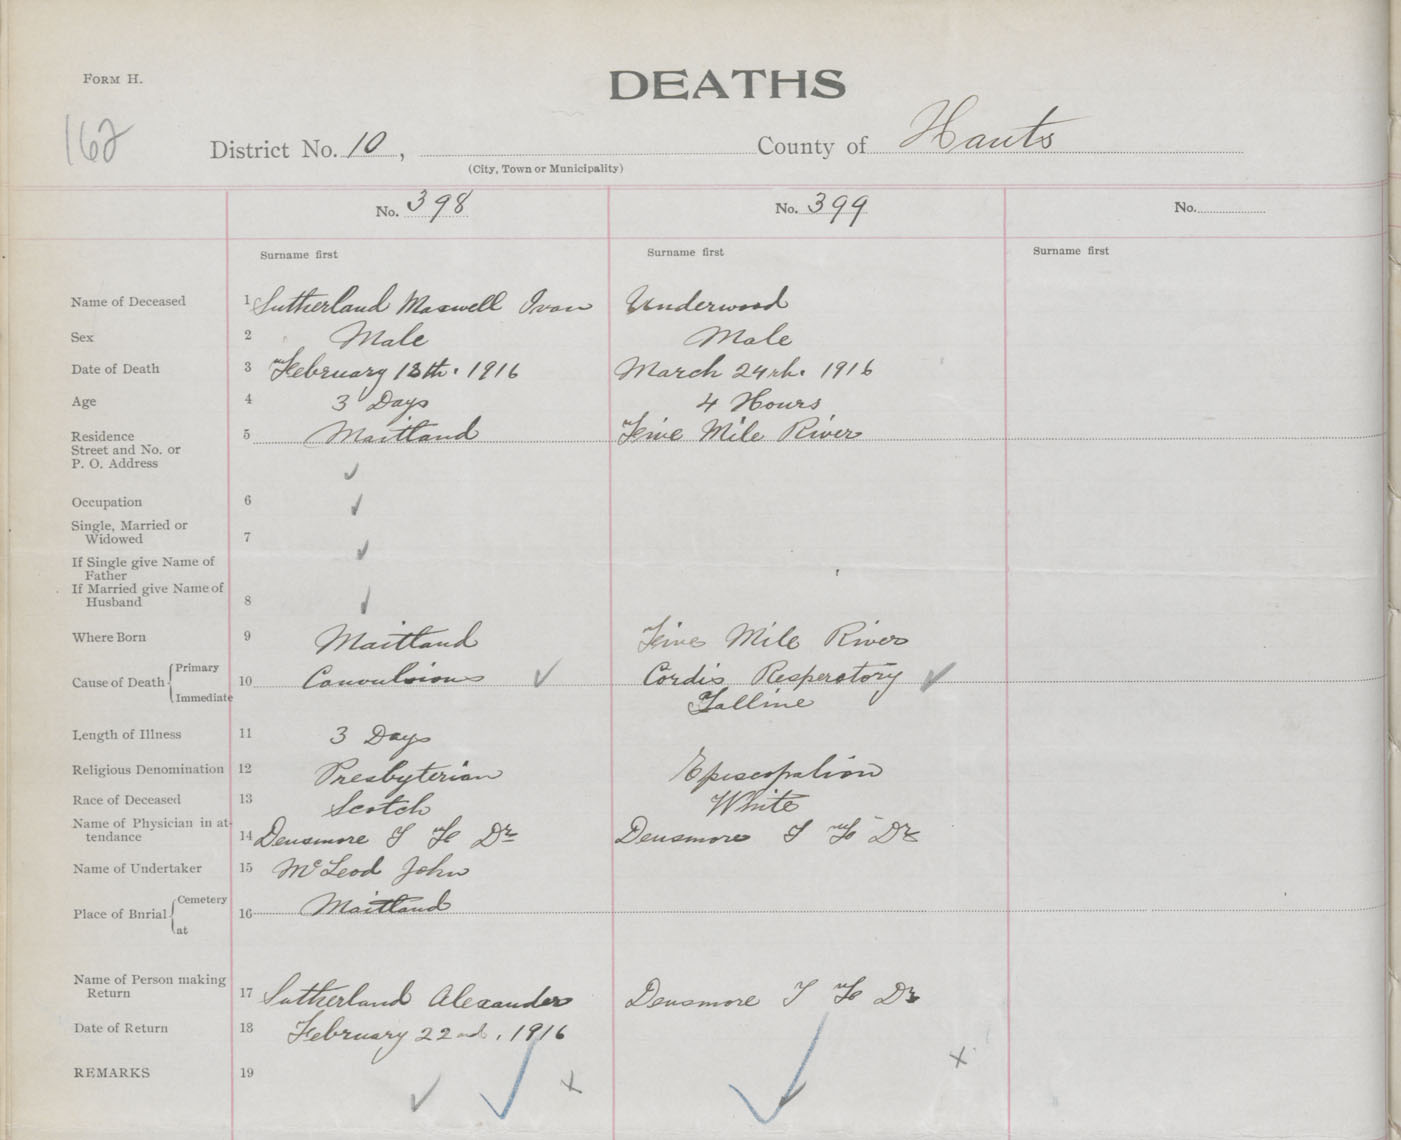 FORM H.
DEATHS
162
District No. 10,
County of Hants
(City, Town or Municipality)
No. 398
No. 399
No.
Surname first
Surname first
Surname first
Name of Deceased 1 Sutherland Maxwell Ivan Underwood
Sex 2 Male Male
Date of Death 3 February 18th. 1916 March 24th. 1916
Age 4 3 Days 4 Hours
Residence 5 Maitland Five Mile River
Street and No. or
P. O. Address
Occupation 6
Single, Married or
Widowed 7
If Single give Name of
Father
If Married give Name of
Husband 8
Where Born 9 Maitland Five Mile River
Cause of Death Primary 10 Convulsions Cordis Resperatory
Immediate Falline
Length of Illness 11 3 Days
Religious Denomination 12 Presbyterian Episcopalian
Race of Deceased 13 Scotch White
Name of Physician in at-
tendance 14 Densmore T F Dr Densmore T F Dr
Name of Undertaker 15 McLeod John
Place of Burial Cemetery 16 Maitland
at
Name of Person making
Return 17 Sutherland Alexander Densmore T F Dr
Date of Return 18 February 22nd. 1916
REMARKS 19